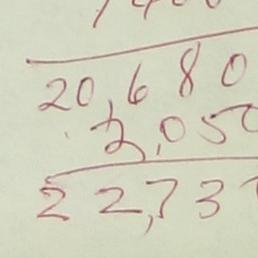 20,680
2,050
22,73